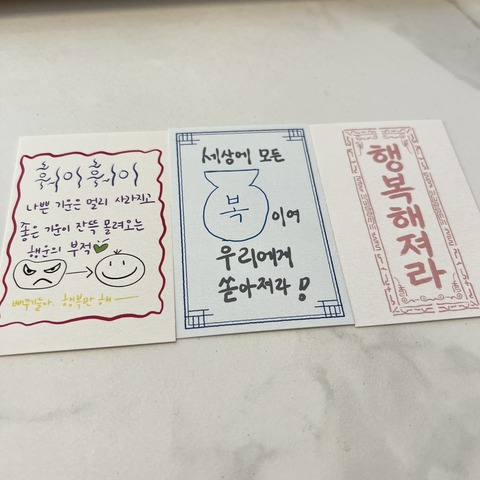 훠이훠이
나쁜 기운은 멀리 사라지고
좋은 기운이 잔뜩 몰려오는
행운의 부적
행복만 해
세상에 모든
복이여
우리에게
쏟아져라!
행복해져라